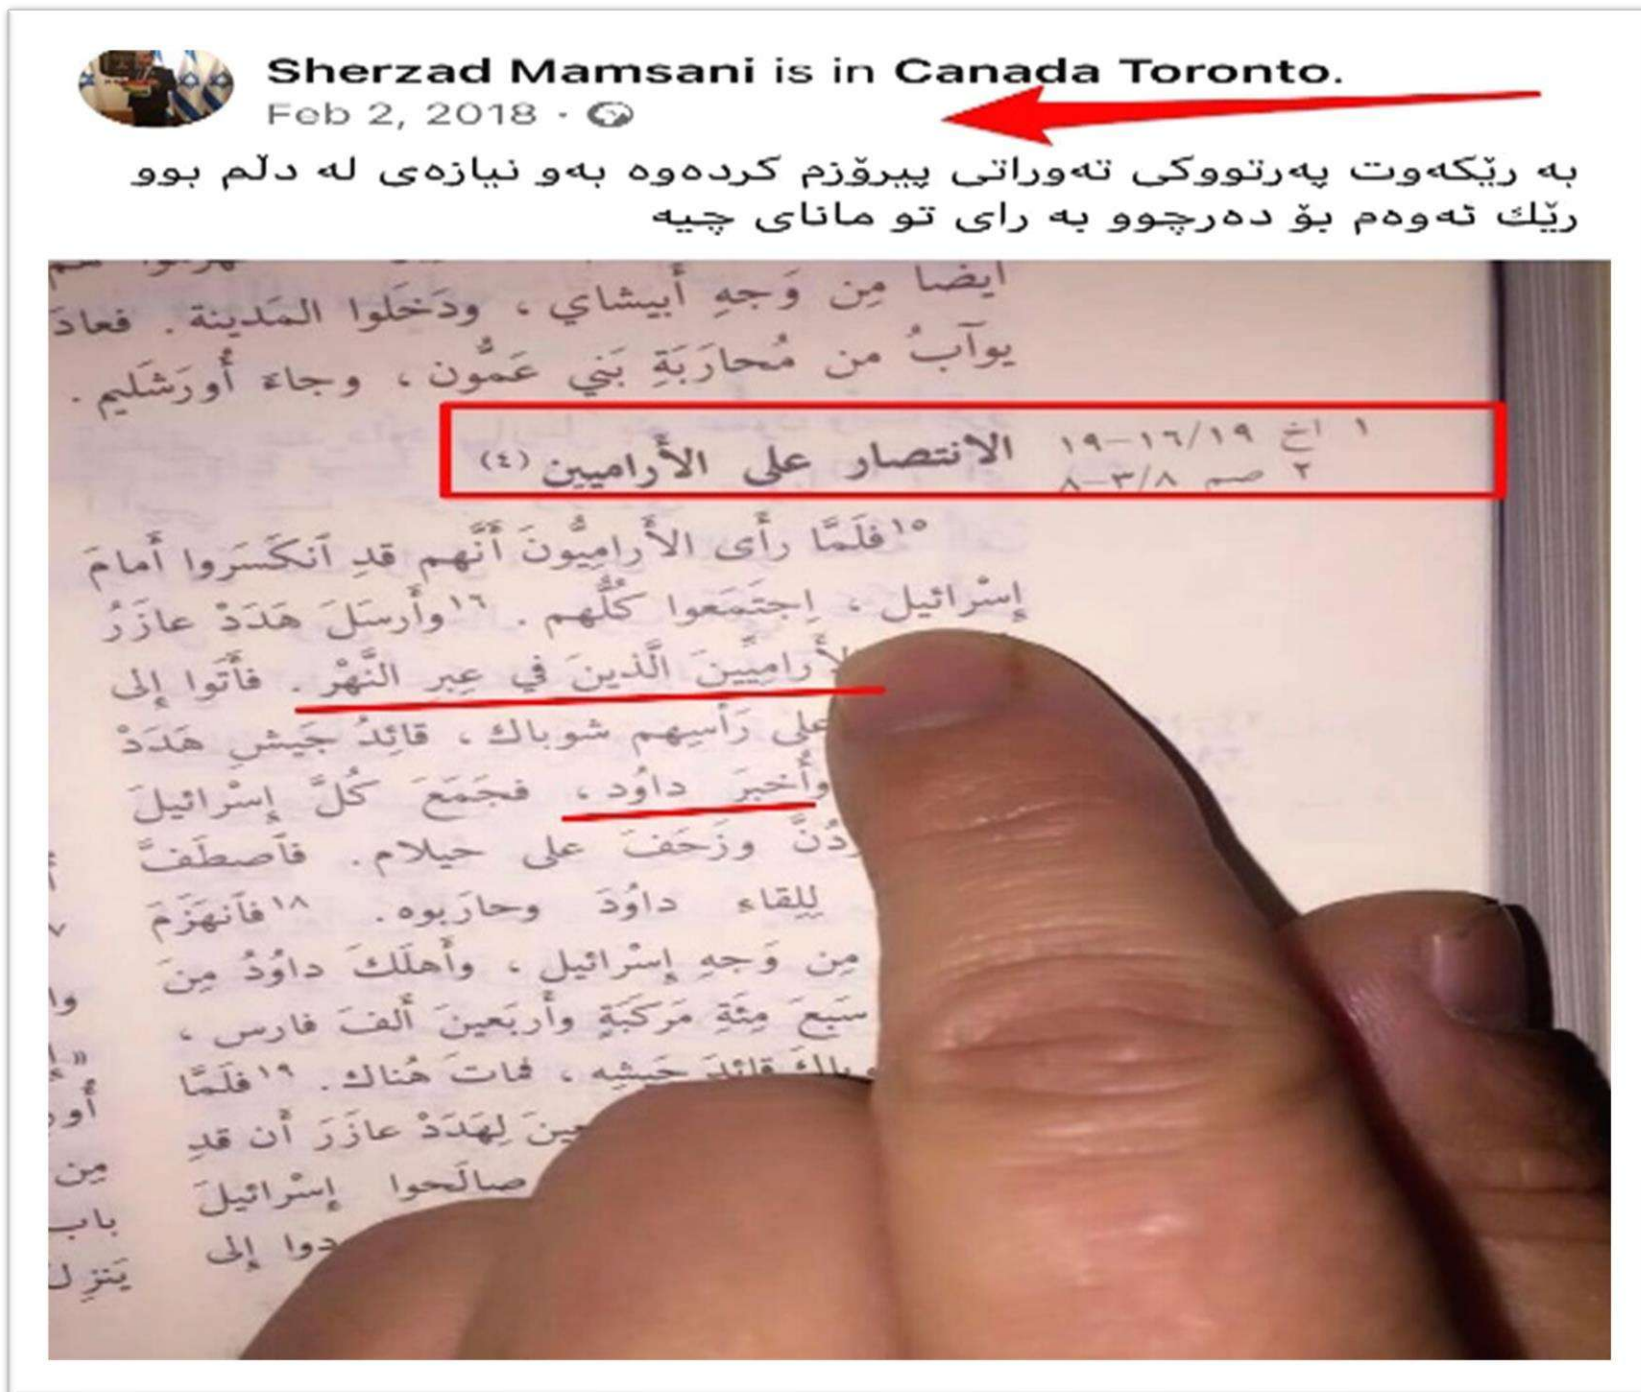 Sherzad Mamsani is in Canada Toronto.
Feb 2, 2018 ·
بە رێکەوت پەرتووکی تەوراتی پیرۆزم کردەوە بەو نیازەی لە دڵم بوو
رێك ئەوەم بۆ دەرچوو بە رای تو مانای چیە
أيضا مِن وَجهِ أَبيشاي ، ودَخَلوا المَدينة . فعادَ
يوآبُ من مُحارَبَةِ بَني عَمُّون ، وجاءَ أُورَشَليم .
١ اخ ١٩/١٦-١٩
٢ صم ٨/٣-٨
الانتصار على الأراميين (٤)
١٥ فَلَمَّا رأَى الأَرامِيُّونَ أَنَّهم قدِ ٱنكَسَروا أَمامَ
إِسْرائيل ، اِجتَمَعوا كُلُّهم . ١٦ وأَرسَلَ هَدَدْ عازَرُ
الأَرامِيِّينَ الَّذينَ في عِبرِ النَّهْر . فأَتَوا إِلى
على رَأسِهم شوباك ، قائِدُ جَيشِ هَدَدْ
وأُخبِرَ داوُد ، فجَمَعَ كُلَّ إِسْرائيلَ
دُنَّ وزَحَفَ على حيلام . فٱصطَفَّ
لِلِقاءِ داوُدَ وحارَبوه . ١٨ فٱنهَزَمَ
مِن وَجهِ إِسْرائيل ، وأَهلَكَ داوُدُ مِنَ
سَبعَ مِئَةِ مَركَبَةٍ وأَربَعينَ أَلفَ فارِس ،
قائِدَ جَيشِه ، فماتَ هُناك . ١٩ فلَمَّا
عينَ لِهَدَدْ عازَرَ أَن قدِ
صالَحوا إِسْرائيلَ
دوا إِلى
وا
أُور
مِن
باب
يَنزِل